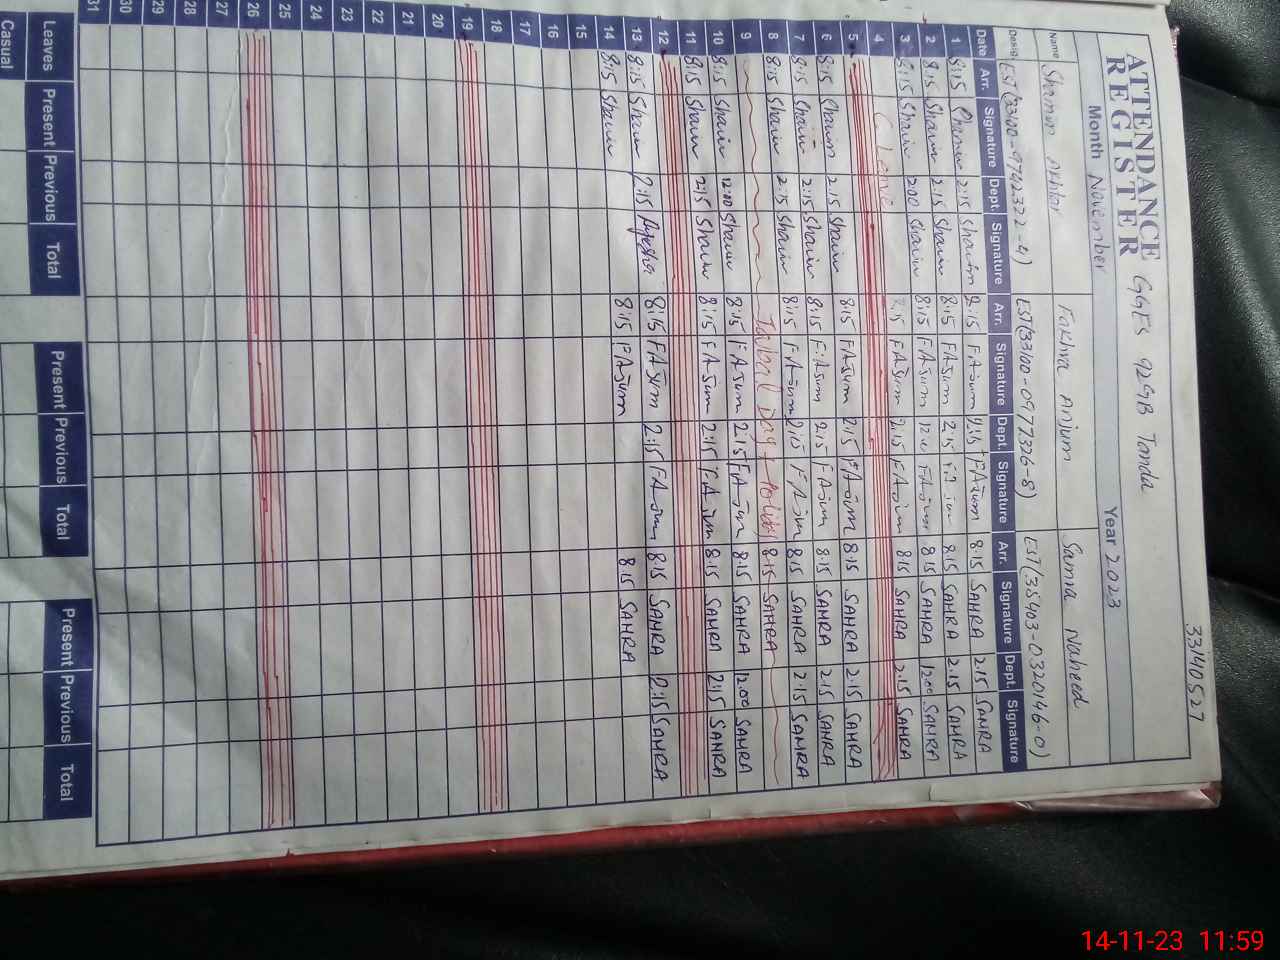 33140527
ATTENDANCE REGISTER GGES 92GB Tanda
Month November Year 2023
Name Shamim Akhtar Fakhra Anjum Samra Naheed
Desig. EST(33100-9762372-4) EST(33100-0977326-8) EST(35403-0320146-0)
Date Arr. Signature Dept. Signature Arr. Signature Dept. Signature Arr. Signature Dept. Signature
1 8:15 2:15 8:15 FAjum 2:15 FAjum 8:15 SAMRA 2:15 SAMRA
2 8:15 Shaim 2:15 Shaim 8:15 FAjum 2:15 8:15 SAMRA 2:15 SAMRA
3 8:15 Shaim 12:00 Shaim 8:15 FAjum 12:00 FAjum 8:15 SAMRA 12:00 SAMRA
4 8:15 FAjum 2:15 FAjum 8:15 SAMRA 2:15 SAMRA
5
6 8:15 Shaim 2:15 Shaim 8:15 FAjum 2:15 FAjum 8:15 SAMRA 2:15 SAMRA
7 8:15 Shaim 2:15 Shaim 8:15 FAjum 2:15 FAjum 8:15 SAMRA 2:15 SAMRA
8 8:15 Shaim 2:15 Shaim 8:15 FAjum 2:15 FAjum 8:15 SAMRA 2:15 SAMRA
9 Day Holiday 8:15 SAMRA
10 8:15 Shaim 12:00 Shaim 8:15 FAjum 2:15 FAjum 8:15 SAMRA 12:00 SAMRA
11 8:15 Shaim 2:15 Shaim 8:15 FAjum 2:15 FAjum 8:15 SAMRA 2:15 SAMRA
12
13 8:15 Shaim 2:15 Ayesha 8:15 FAjum 2:15 FAjum 8:15 SAMRA 2:15 SAMRA
14 8:15 Shaim 8:15 FAjum 8:15 SAMRA
15
16
17
18
19
20
21
22
23
24
25
26
27
28
29
30
31
Leaves Present Previous Total Present Previous Total Present Previous Total
Casual
14-11-23 11:59